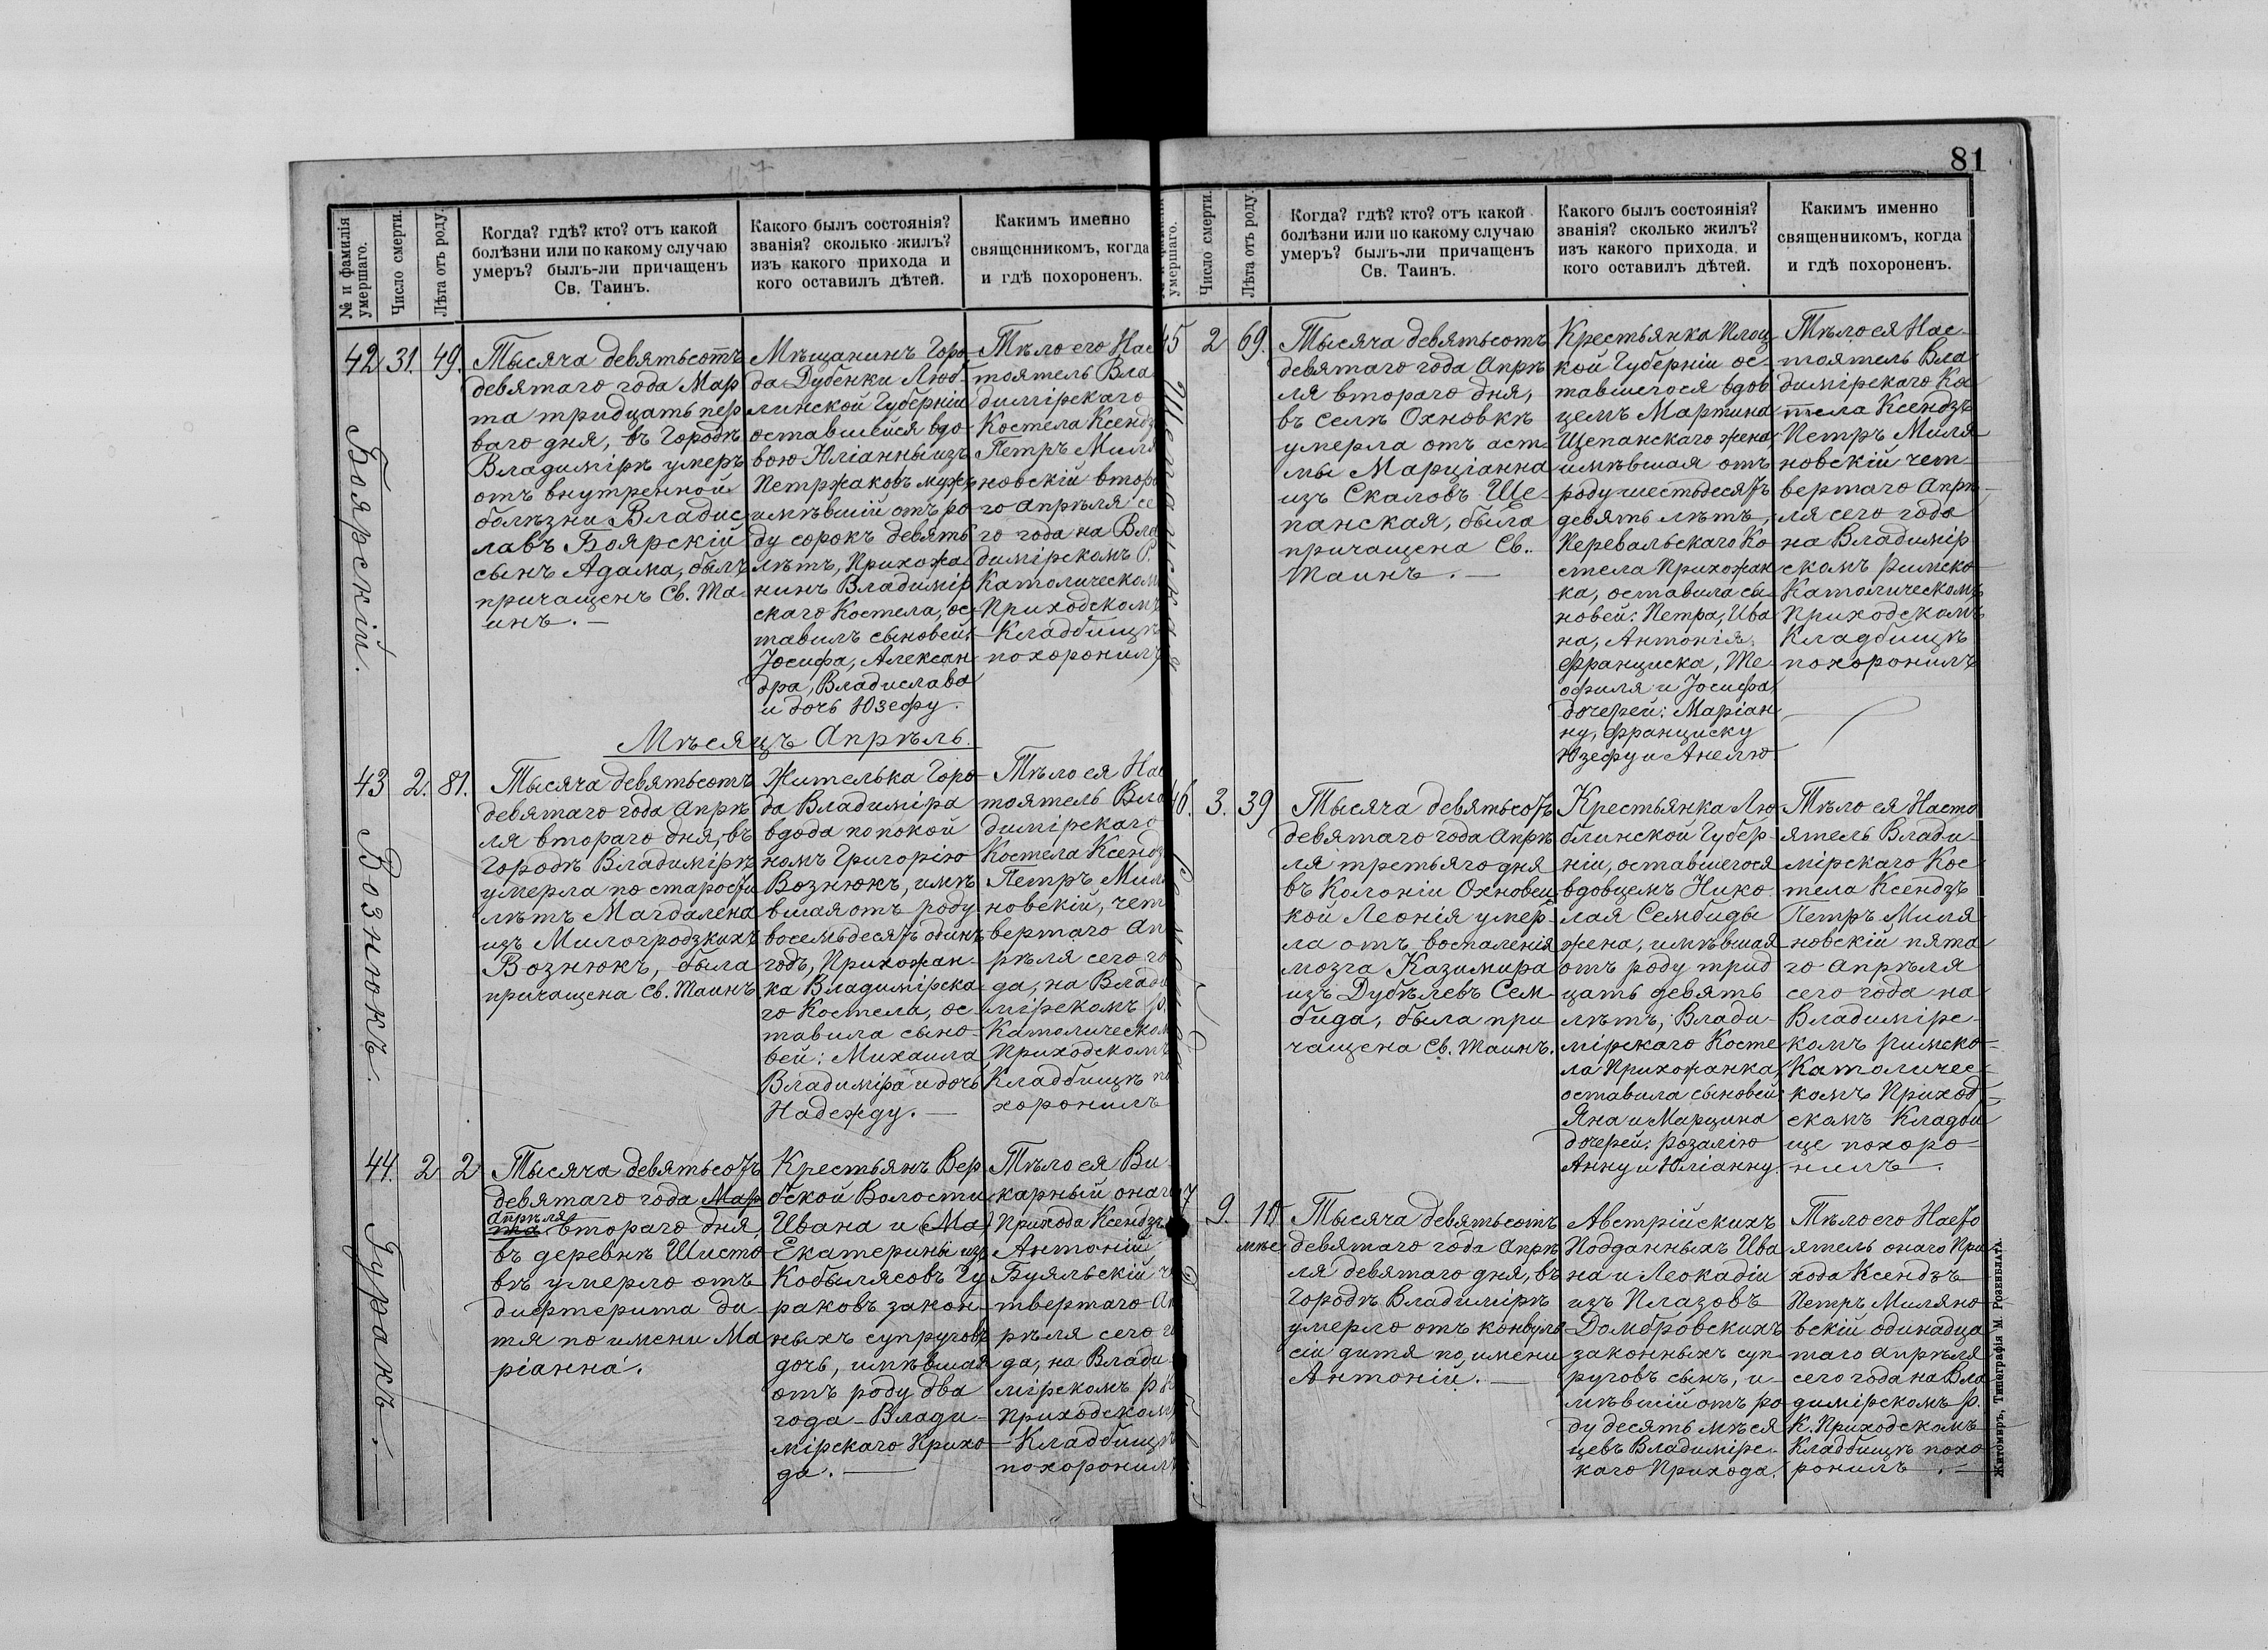 81
№ и фамилія
умершаго.
Число смерти.
Лѣта отъ роду.
Когда? гдѣ? кто? отъ какой
болѣзни или по какому случаю
умеръ? былъ-ли причащенъ
Св. Таинъ.
Какого былъ состоянія?
званія? сколько жилъ?
изъ какого прихода и
кого оставилъ дѣтей.
Какимъ именно
священникомъ, когда
и гдѣ похороненъ.
42
Боярскій.
31.
49.
Тысяча девятьсотъ
девятаго года Мар
та тридцать пер
ваго дня, въ Городѣ
Владимірѣ умеръ
отъ внутренной
болѣзни Владис
лавъ Боярскій
сынъ Адама, былъ
причащенъ Св. Та-
инъ. —
Мѣщанинъ Горо
да Дубенки Люб
линской Губерніи
оставшейся вдо
вою Юліанны изъ
Петржаковъ мужъ
имѣвшій отъ ро
ду сорокъ девять
лѣтъ, Прихожа
нинъ Владимір
скаго Костела, ос-
тавилъ сыновей:
Іосифа, Алексан
дра, Владислава
и дочь Юзефу.
Тѣло его Нас
тоятель Вла
димірскаго
Костела Ксендз
Петръ Миля
новскій второ
го апрѣля се
го года на Вла
димірскомъ Р.
Католическом
Приходскомъ
Кладбищѣ
похоронилъ
Мѣсяцъ Апрѣль.
43
Вознюкъ.
2.
81.
Тысяча девятьсотъ
девятаго года Апрѣ
ля втораго дня, въ
Городѣ Владимірѣ
умерла по старости
лѣтъ Магдалена
изъ Милогродзкихъ
Вознюкъ, была
причащена Св. Таинъ.
Жителька Горо
да Владиміра
вдова по покой
номъ Григорію
Вознюкъ, имѣ
вшая отъ роду
восемьдесятъ одинъ
годъ, Прихожан-
ка Владимірска
го Костела, ос-
тавила сыно-
вей: Михаила
Владиміра и дочь
Надежду. —
Тѣло ея Нас
тоятель Вла
димірскаго
Костела Ксендз
Петръ Миля
новскій, чет
вертаго Ап
рѣля сего го
да, на Влади
мірскомъ Р.
Католическом
Приходскомъ
Кладбищѣ по
хоронилъ
44.
Гуракъ.
2
2
Тысяча девятьсотъ
девятаго года Мар
та Апрѣля втораго дня,
въ деревнѣ Шисто
вѣ умерло отъ
дифтерита ди
тя по имени Ма
ріанна.
Крестьянъ Вер
бской Волости
Ивана и (Ма)
Екатерины изъ
Кобылясовъ Гу
раковъ закон-
ныхъ супруговъ
дочь, имѣвшая
отъ роду два
года - Влади-
мірскаго Прихо
да. —
Тѣло ея Ви-
карный онаго
Прихода Ксендзъ
Антоній
Буяльскій че
твертаго Ап
рѣля сего го
да, на Влади
мірскомъ Р К
Приходском
Кладбищѣ
похоронилъ
умершаго.
Число смерти.
Лѣта отъ роду.
Когда? гдѣ? кто? отъ какой
болѣзни или по какому случаю
умеръ? былъ-ли причащенъ
Св. Таинъ.
Какого былъ состоянія?
званія? сколько жилъ?
изъ какого прихода и
кого оставилъ дѣтей.
Какимъ именно
священникомъ, когда
и гдѣ похороненъ.
45
Щепанская
2
69.
Тысяча девятьсотъ
девятаго года Апрѣ
ля втораго дня,
въ селѣ Охновкѣ
умерла отъ аст-
мы Марціанна
изъ Скаловъ Ще-
панская, была
причащена Св.
Таинъ. —
Крестьянка Плоц
кой Губерніи ос-
тавшегося вдов
цемъ Мартина
Щепанскаго жена
имѣвшая отъ
роду шестьдесятъ
девять лѣтъ,
Перевальскаго Ко
стела Прихожан
ка, оставила сы-
новей: Петра, Ива
на, Антонія,
Франциска, Те-
офиля и Іосифа,
дочерей: Маріан
ну, Франциску
Юзефу и Анелю
Тѣло ея Нас-
тоятель Вла
димірскаго Ко
стела Ксендзъ
Петръ Миля
новскій чет-
вертаго Апрѣ-
ля сего года
на Владимір
скомъ Римско-
Католическомъ
Приходскомъ
Кладбищѣ
похоронилъ
46.
3.
39
Тысяча девятьсотъ
девятаго года Апрѣ
ля третьяго дня
въ Колоніи Охновец
кой Леонія умер-
ла отъ воспаленія
мозга Казимира
изъ Дубѣлевъ Сем-
бида, была при
чащена Св. Таинъ.
Крестьянка Лю
блинской Губер-
ніи, оставшегося
вдовцемъ Нико
лая Сембиды
жена, имѣвшая
отъ роду трид
цать девять
лѣтъ, Влади-
мірскаго Косте
ла Прихожанка,
оставила сыновей
Яна и Марцина
дочерей: Розалію
Анну и Юліанну.
Тѣло ея Насто
ятель Влади-
мірскаго Кос
тела Ксендзъ
Петръ Миля
новскій пята
го Апрѣля
сего года на
Владимірс-
комъ Римско-
Католичес-
комъ Приход-
скомъ Кладби
ще похоро-
нилъ.
7
9.
10
мѣс.
Тысяча девятьсотъ
девятаго года Апрѣ
ля девятаго дня, въ
Городѣ Владимірѣ
умерло отъ конвуль
сіи дитя по имени
Антоній. —
Австрійскихъ
Подданныхъ Ива
на и Леокадіи
изъ Плазовъ
Домбровскихъ
законныхъ суп-
руговъ сынъ, и-
мѣвшій отъ ро
ду десять мѣся
цевъ Владимірс-
каго Прихода.
Тѣло его Насто
ятель онаго При
хода Ксендзъ
Петръ Миляно
вскій одинадца
таго Апрѣля
сего года на Вла
димірскомъ Р.
К. Приходскомъ
Кладбищѣ похо
ронилъ. —
Житомиръ, Типографія М. Розенблата.